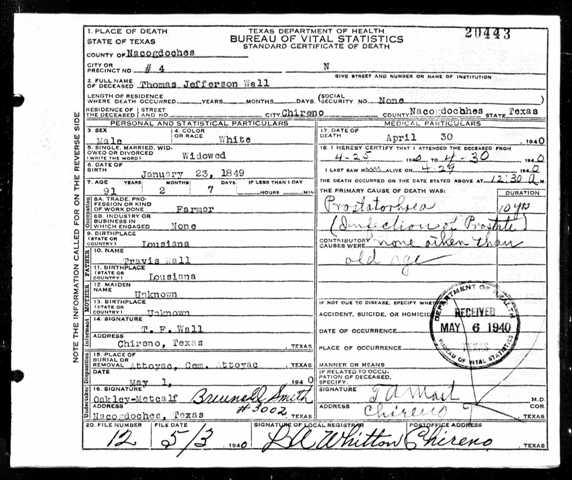 TEXAS DEPARTMENT OF HEALTH
BUREAU OF VITAL STATISTICS
STANDARD CERTIFICATE OF DEATH
20443
1. PLACE OF DEATH
STATE OF TEXAS
COUNTY OF Nacogdoches
CITY OR PRECINCT NO. # 4 N
GIVE STREET AND NUMBER OR NAME OF INSTITUTION
2. FULL NAME OF DECEASED Thomas Jefferson Wall
LENGTH OF RESIDENCE WHERE DEATH OCCURRED YEARS MONTHS DAYS (SOCIAL SECURITY NO. None
RESIDENCE OF THE DECEASED STREET AND NO. CITY Chireno COUNTY Nacogdochhes STATE Texas
PERSONAL AND STATISTICAL PARTICULARS
MEDICAL PARTICULARS
3. SEX Male
4. COLOR OR RACE White
17. DATE OF DEATH April 30 1940
5. SINGLE, MARRIED, WIDOWED OR DIVORCED (WRITE THE WORD) Widowed
18. I HEREBY CERTIFY THAT I ATTENDED THE DECEASED FROM
4-25 1940 TO 4-30 1940
6. DATE OF BIRTH January 23, 1849
I LAST SAW ALIVE ON 4-29 1940
THE DEATH OCCURRED ON THE DATE STATED ABOVE AT 12:30
7. AGE YEARS MONTHS DAYS IF LESS THAN 1 DAY
91 2 7 HOURS MIN
THE PRIMARY CAUSE OF DEATH WAS: DURATION
8A. TRADE, PROFESSION OR KIND OF WORK DONE Farmer
Prostatorhsea 10 yrs
8B. INDUSTRY OR BUSINESS IN WHICH ENGAGED None
(Infection of Prostate)
9. BIRTHPLACE (STATE OR COUNTRY) Lousiana
CONTRIBUTORY CAUSES none other than
old age
FATHER
10. NAME Travis Wall
11. BIRTHPLACE (STATE OR COUNTRY) Lousiana
MOTHER
12. MAIDEN NAME Unknown
13. BIRTHPLACE (STATE OR COUNTRY) Unknown
IF NOT DUE TO DISEASE, SPECIFY WHETHER
ACCIDENT, SUICIDE, OR HOMICIDE
DATE OF OCCURRENCE
14. SIGNATURE T. F. Wall
ADDRESS Chireno, Texas TEXAS
PLACE OF OCCURRENCE
DEPARTMENT OF HEALTH
RECEIVED
MAY 6 1940
BUREAU OF VITAL STATISTICS
15. PLACE OF BURIAL OR REMOVAL Attoyac, Cem. Attoyac TEXAS
May 1, 1940
MANNER OR MEANS
IF RELATED TO OCCUPATION OF DECEASED, SPECIFY
16. SIGNATURE Oakley-Metcalf Brunell Smith
#3002
ADDRESS Nacogdoches, Texas TEXAS
SIGNATURE M.D.
ADDRESS Chireno TEXAS
20. FILE NUMBER 12
FILE DATE 5/3 1940
SIGNATURE OF LOCAL REGISTRAR Whitton
POSTOFFICE ADDRESS Chireno, TEXAS
NOTE THE INFORMATION CALLED FOR ON THE REVERSE SIDE